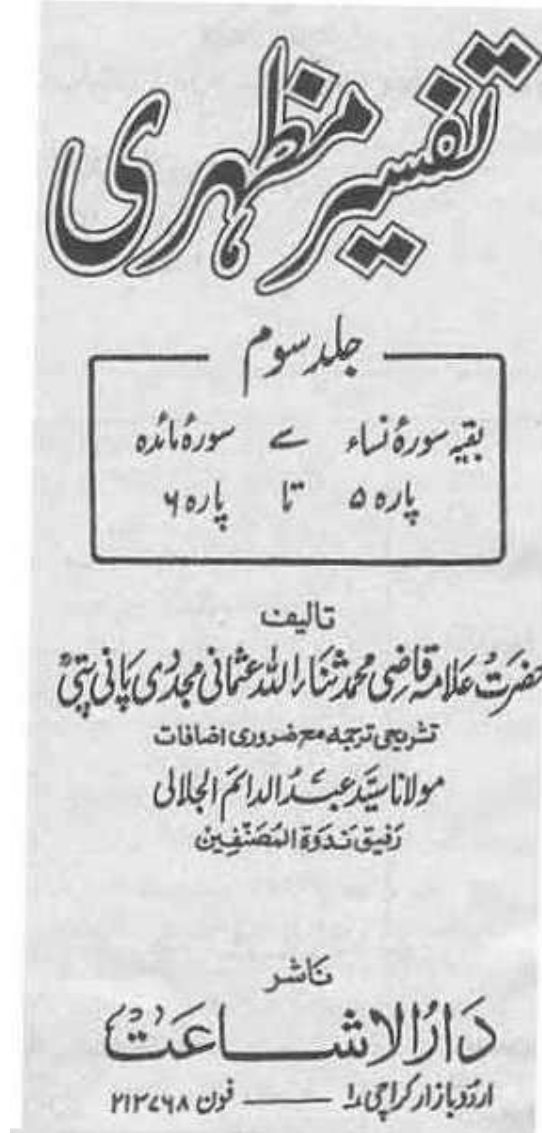 تفسیر مظہری
جلد سوم
بقیہ سورۂ نساء سے سورۂ مائدہ
پارہ ۵ تا پارہ ۶
تالیف
حضرت علامہ قاضی محمد ثناء اللہ عثمانی مجددی پانی پتیؒ
تشریحی ترجمہ مع ضروری اضافات
مولانا سید عبد الدائم الجلالی
رفیق ندوۃ المصنفین
ناشر
دارالاشاعت
اردو بازار کراچی ۱ — فون ۲۱۳۷۶۸